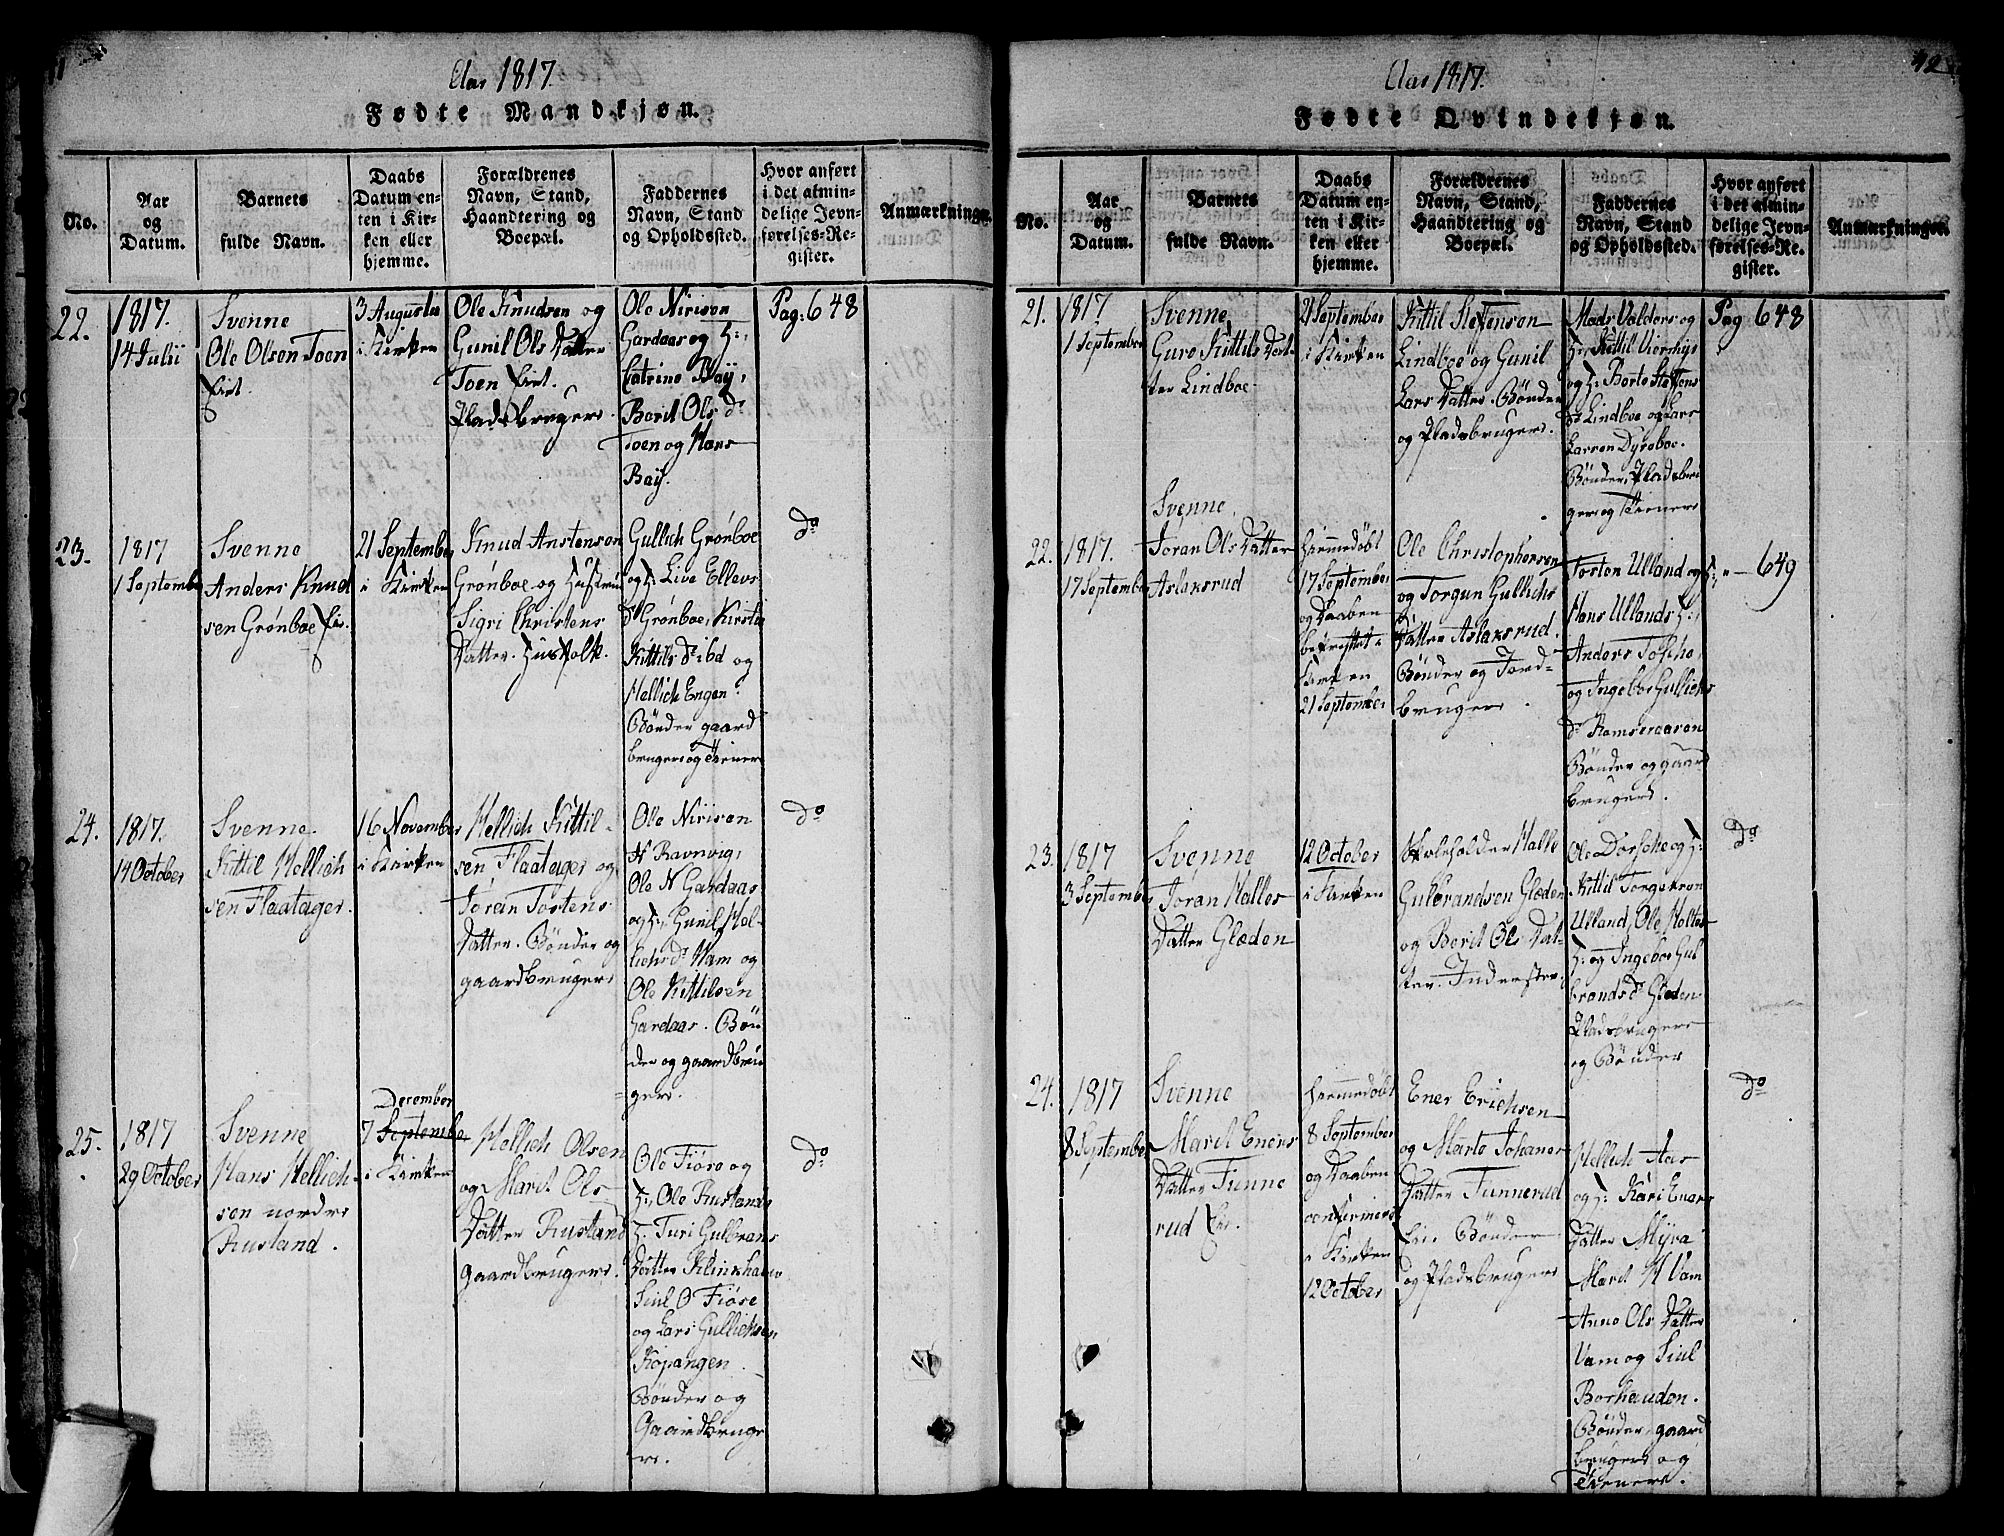 Aar 1817.
Fødte Mandkjøn.
No.
Aar
og
Datum.
Barnets
fulde Navn.
Daabs
Datum en-
ten i Kir-
ken eller
hjemme.
Forældrenes
Navn, Stand,
Haandtering og
Boepæl.
Faddernes
Navn, Stand
og Opholdssted.
Hvor anført
i det almin-
delige Jevn-
førelses-Re-
gister.
Anmærkninger.
22.
1817.
14 Julii
Svenne
Ole Olsen Toen
Eiet.
3 Augustus
i Kirken
Ole Knudsen og
Gunil Ols Datter
Toen Eiet.
Pladsbrugere.
Ole Nirison
Gardaas og H:,
Catrine Baÿ,
Berit Ols D.
Toen og Hans
Baÿ.
Pag: 648
23.
1817
1 September
Svenne
Anders Knud
sen Grønboe Eie.
21 September
i Kirken
Knud Anstenson
Grønboe og Hustrue
Sigri Christens
Datter. Husfolk.
Gullich Grønboe
og H: Live Ellevs
D. Grønboe, Kirstie
Kittils D. ibd og
Hellich Engen.
Bønder gaard
brugere og Tiener
Do
24.
1817.
14 October
Svenne.
Kittil Hellich
sen Flaatager.
16 November
i Kirken
Hellich Kittil-
sen Flaatager og
Joran Tostens
Datter. Bønder og
gaardbrugere
Ole Nirison
N Ravnvig,
Ole N Gardaas
og H:, Gunil Hel-
lichs D. Vam og
Ole Kittilsen
Gardaas. Bøn
der og gaardbru
gere.
Do
25.
1817
29 October
Svenne
Hans Hellich-
sen nordre
Rustand.
December
7 September
i Kirken
Hellich Olsen
og Marit Ols
Datter Rustand
gaardbrugere.
Ole Fiøse og
H:, Ole Rustands
H: Turi Gulbrans
Datter
Siul O Fiøse
og Lars Gullichsen
Kopangen.
Bønder og
Gaardbruge
re.
Do
42
Aar 1817.
Fødte Qvindekjøn.
No.
Aar
og
Datum.
Barnets
fulde Navn.
Daabs
Datum en-
ten i Kir-
ken eller
hjemme.
Forældrenes
Navn, Stand,
Haandtering og
Boepæl.
Faddernes
Navn, Stand
og Opholdssted.
Hvor anført
i det almin-
delige Jevn-
førelses-Re-
gister.
Anmærkninger.
21.
1817
1 September
Svenne
Guro Kittils Dat-
ter Lindboe
21 September
i Kirken
Kittil Steffenson
Lindboe og Gunil
Lars Datter. Bønder
og Pladsbrugere.
Mads Valders og
H:, Kittil
og H: Berte Steffens
D. Lindboe og Lars
Larsen Dyreboe.
Bønder, Pladsbru
gere og Tienere
Pag 648
22.
1817.
17 September
Svenne.
Joran Ols Datter
Aslaksrud
hiemmedøbt
17 September
og Daaben
bekræftet i
Kirken
21 September
Ole Christophersen
og Torgun Gullichs
Datter Aslaksrud.
Bønder og Jord-
brugere.
Tosten Ulland og H:,
Hans Ullands H:,
Anders Tofthe,
og Ingeboe Gullichs
D. Ramseraasen
Bønder og gaard
brugere.
" — 649
23.
1817
3 September
Svenne
Joran Halles
Datter Glæden
12 October
i Kirken
Skoleholder Halle
Gulbrandsen Glæden
og Berit Ols Dat-
ter. Inderster.
Ole Dorfthe og H:
Kittil Torgerson
Ulland, Ole Holtes
H: og Ingeboe Gul
brands D. Glæden
Pladsbrugere
og Bønder
Do
24.
1817
8 September
Svenne
Marit Eners
Datter Tinne
rud Eie.
hiemmedøbt
8 September
og Daaben
confirmeret
i Kirken
12 October
Ener Erichsen
og Marte Johanes
Datter Tunnerud
Eie. Bønder
og Pladsbrugere
Hellich Aas
og H: Kari Enars
Datter Myra
Marit H Vam
Anne Ols Datter
Vam og Siul
Borhauden.
Bønder, gaard
brugere og
Tienere.
Do